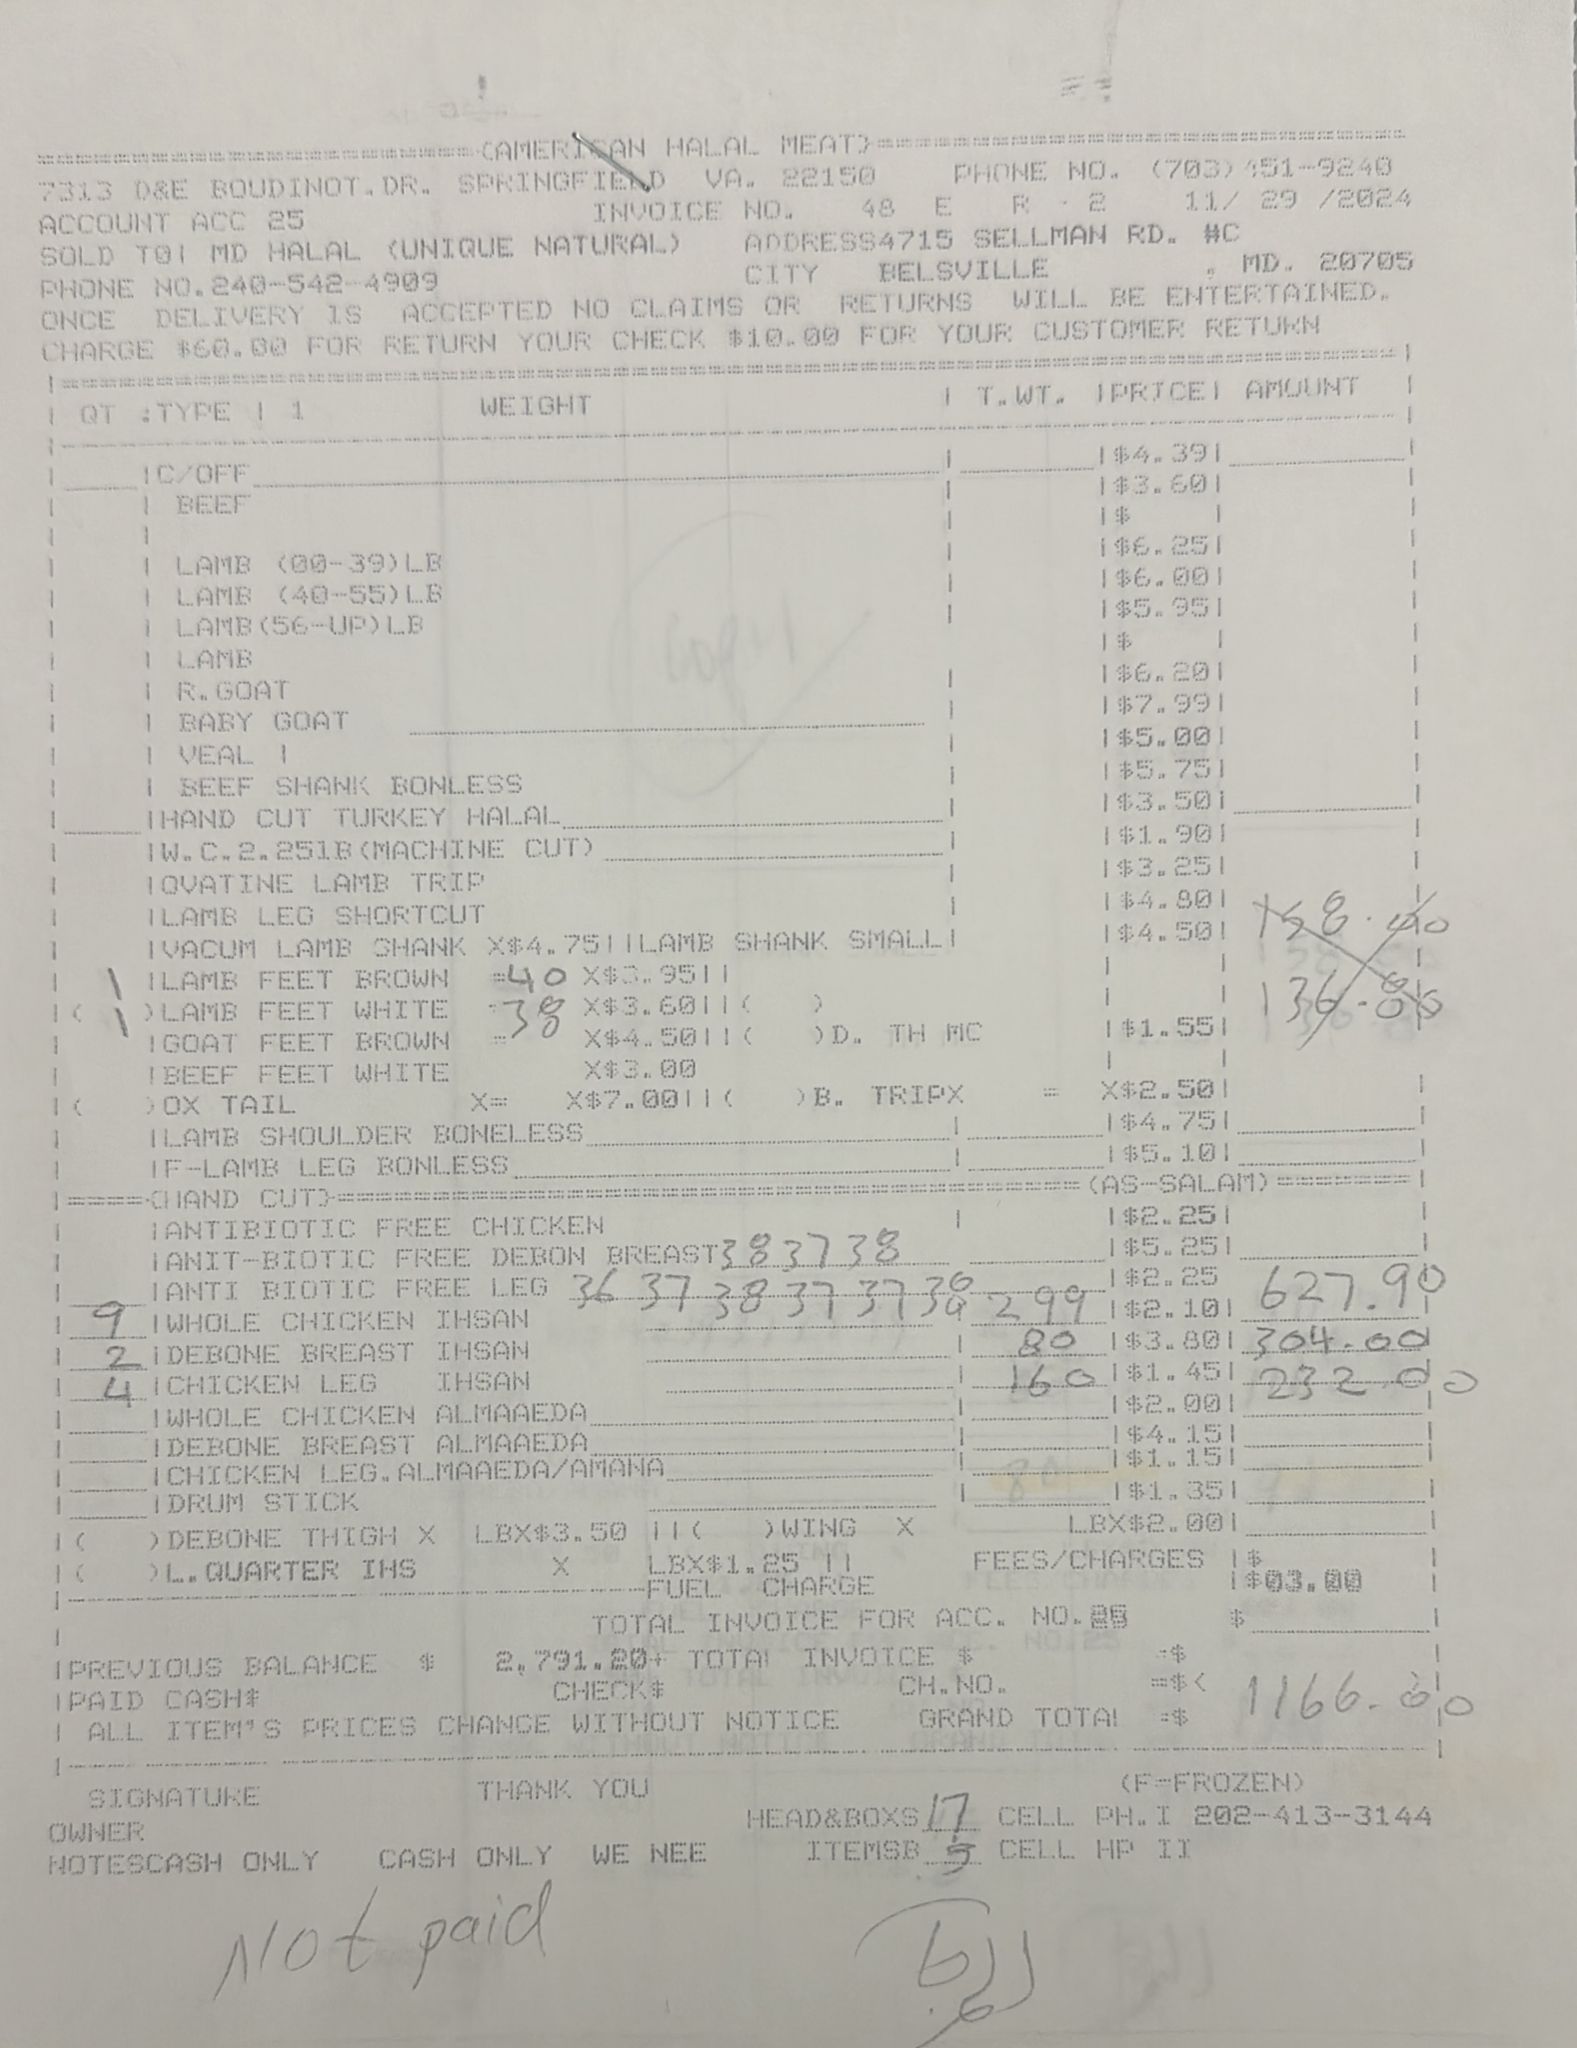 (AMERICAN HALAL MEAT)
7313 D&E BOUDINOT.DR. SPRINGFIELD VA. 22150 PHONE NO. (703)451-9240
ACCOUNT ACC 25 INVOICE NO. 48 E R 2 11/ 29 /2024
SOLD TO| MD HALAL (UNIQUE NATURAL) ADDRESS4715 SELLMAN RD. #C
PHONE NO.240-542-4909 CITY BELSVILLE . MD. 20705
ONCE DELIVERY IS ACCEPTED NO CLAIMS OR RETURNS WILL BE ENTERTAINED.
CHARGE $60.00 FOR RETURN YOUR CHECK $10.00 FOR YOUR CUSTOMER RETURN
QT :TYPE | 1 WEIGHT | T.WT. |PRICE| AMOUNT
|C/OFF |$4.39|
| BEEF |$3.60|
| |$ |
| LAMB (00-39)LB |$6.25|
| LAMB (40-55)LB |$6.00|
| LAMB(56-UP)LB |$5.95|
| LAMB |$ |
| R.GOAT |$6.20|
| BABY GOAT |$7.99|
| VEAL | |$5.00|
| BEEF SHANK BONLESS |$5.75|
|HAND CUT TURKEY HALAL |$3.50|
|W.C.2.251B(MACHINE CUT) |$1.90|
|OVATINE LAMB TRIP |$3.25|
|LAMB LEG SHORTCUT |$4.80|
|VACUM LAMB SHANK X$4.75||LAMB SHANK SMALL| |$4.50| 158.00
1 |LAMB FEET BROWN =40 X$3.95||
|( 1 )LAMB FEET WHITE 38 X$3.60||( ) 136.80
|GOAT FEET BROWN = X$4.50||( )D. TH MC |$1.55|
|BEEF FEET WHITE X$3.00
|( )OX TAIL X= X$7.00||( )B. TRIPX = X$2.50|
|LAMB SHOULDER BONELESS |$4.75|
|F-LAMB LEG BONLESS |$5.10|
(HAND CUT) (AS-SALAM)
|ANTIBIOTIC FREE CHICKEN |$2.25|
|ANIT-BIOTIC FREE DEBON BREAST 38 37 38 |$5.25|
|ANTI BIOTIC FREE LEG 36 37 38 37 37 |$2.25
9 |WHOLE CHICKEN IHSAN 299 |$2.10| 627.90
2 |DEBONE BREAST IHSAN 80 |$3.80| 304.00
4 |CHICKEN LEG IHSAN 160 |$1.45| 232.00
|WHOLE CHICKEN ALMAAEDA |$2.00|
|DEBONE BREAST ALMAAEDA |$4.15|
|CHICKEN LEG.ALMAAEDA/AMANA |$1.15|
|DRUM STICK |$1.35|
|( )DEBONE THIGH X LBX$3.50 ||( )WING X LBX$2.00|
|( )L.QUARTER IHS X LBX$1.25 || FEES/CHARGES |$
FUEL CHARGE |$03.00
TOTAL INVOICE FOR ACC. NO.25 $
|PREVIOUS BALANCE $ 2,791.20+ TOTAL INVOICE $ =$
|PAID CASH$ CHECK$ CH.NO. =$<
| ALL ITEM'S PRICES CHANGE WITHOUT NOTICE GRAND TOTAL =$ 1166.00
SIGNATURE THANK YOU (F=FROZEN)
OWNER HEAD&BOXS 17 CELL PH.I 202-413-3144
NOTESCASH ONLY CASH ONLY WE NEE ITEMSB CELL HP II
Not paid